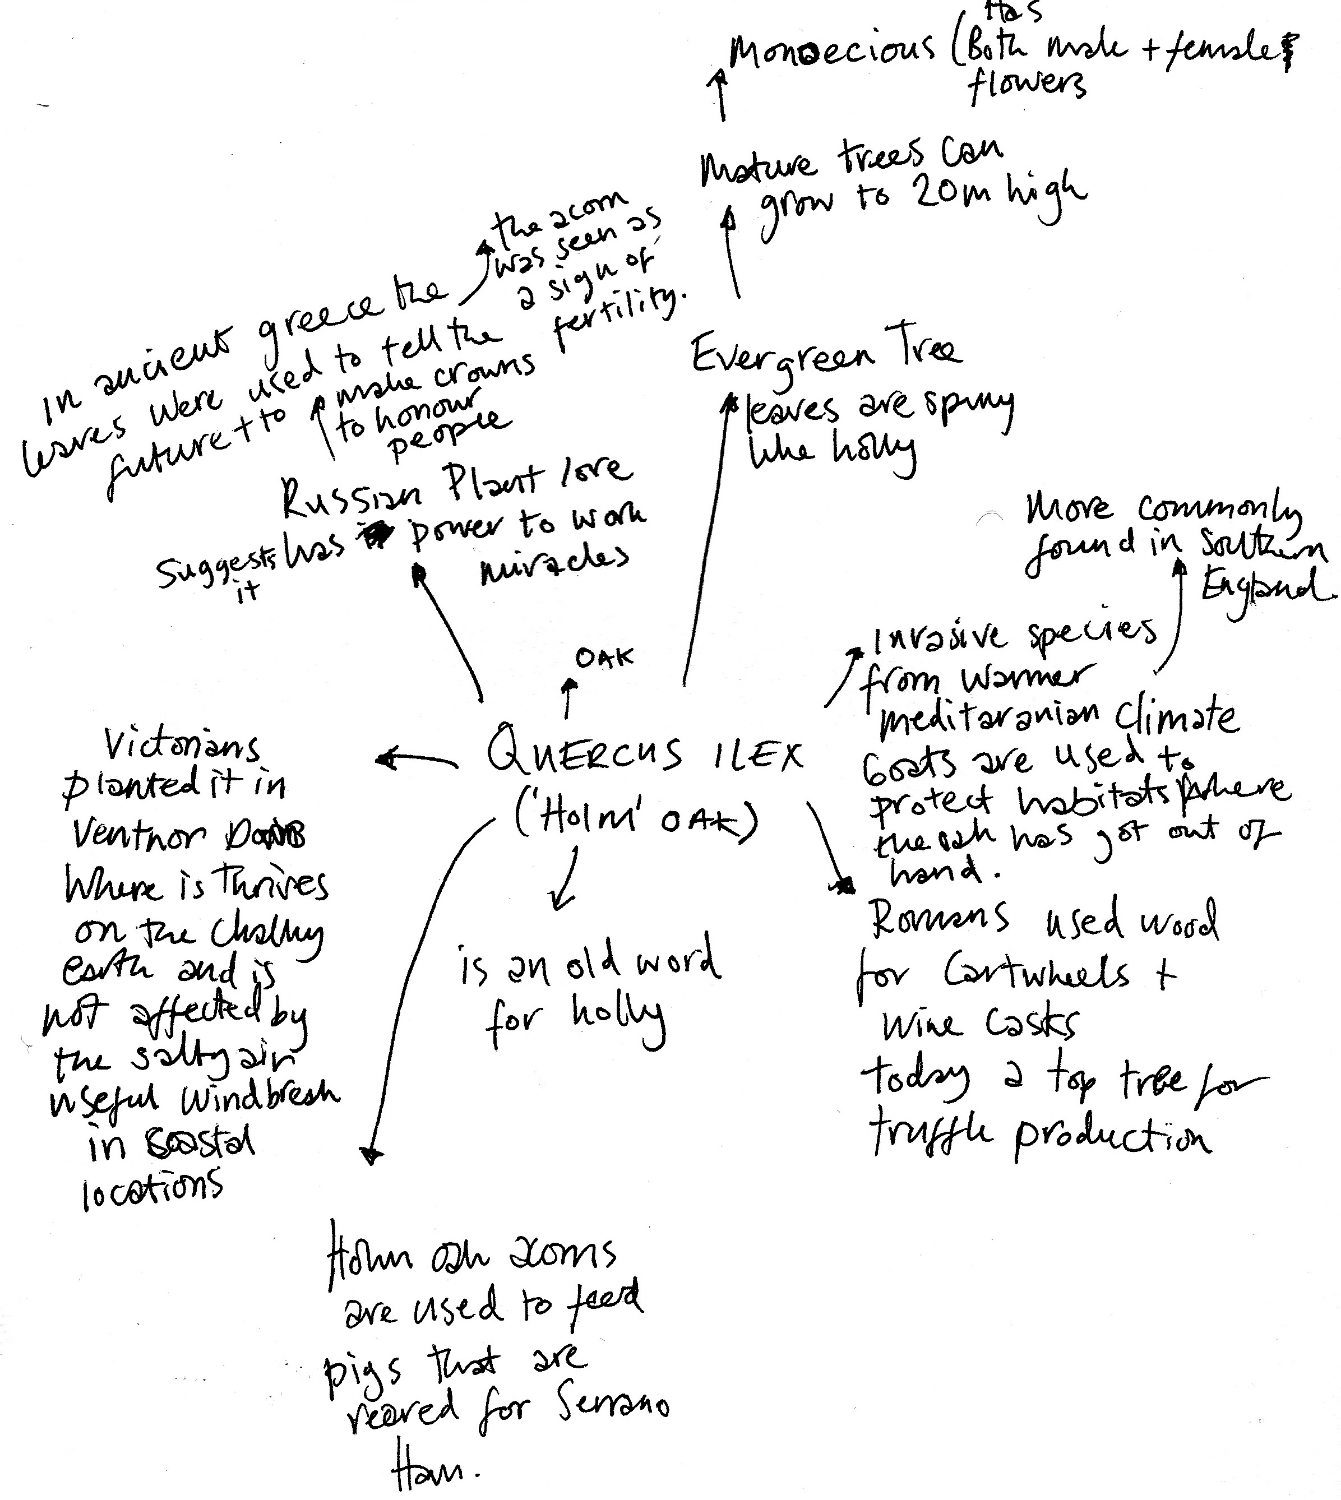 Has
Monoecious (Both male + female
flowers
Mature trees can
grow to 20m high
the acorn
was seen as
a sign of
fertility.
In ancient greece the
leaves were used to tell the
future + to make crowns
to honour
people
Evergreen Tree
leaves are spiny
like holly
Russian Plant lore
Suggests has power to work
it
miracles
More commonly
found in Southern
England.
OAK
Invasive species
from warmer
meditaranian climate
Goats are used to
protect habitats where
the oak has got out of
hand.
QUERCUS ILEX
('Holm' OAK)
Victorians
planted it in
Ventnor
Where is Thrives
on the Chalky
earth and is
not affected by
the salty air
useful windbreak
in coastal
locations
is an old word
for holly
Romans used wood
for Cartwheels +
Wine Casks
today a top tree for
truffle production
Holm oak acorns
are used to feed
pigs that are
reared for Serrano
Ham.